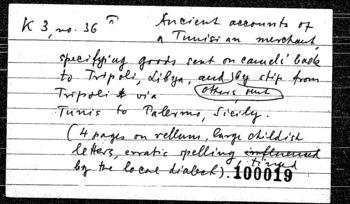 K 3, no. 36 Ancient accounts of
a Tunisian merchant
specifying goods sent on camels' back
to Tripoli, Libya, and others sent by ship from
Tripoli & via
Tunis to Palermo, Sicily.
(4 pages on vellum, large childish
letters, erratic spelling influenced tinged
by the local dialect). 100019